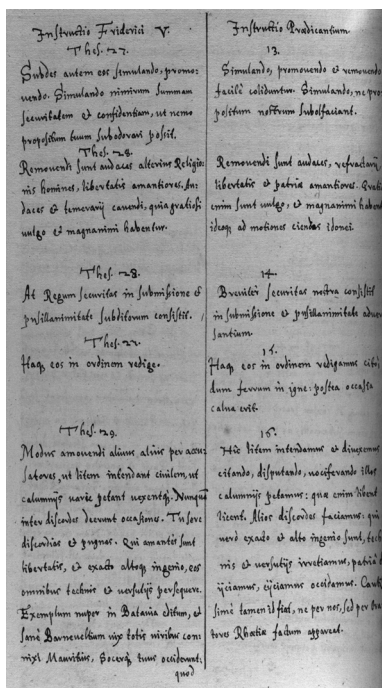 Instructio Friderici V.
Thes. 27.
Subdes autem eos simulando, promo-
vendo. Simulando nimirum summam
securitatem et confidentiam, ut nemo
propositum tuum subodorari possit.
Thes. 28.
Removendi sunt audaces alterius Religio-
nis homines, libertatis amantiores. Au-
daces et temerarij cavendi, quia gratiosi
vulgo et magnanimi habentur.
Thes. 28.
At Regum securitas in submissione et
pusillanimitate subditorum consistit.
Thes. 27.
Itaq, eos in ordinem redige.
Thes. 29.
Modus amovendi alivus, alius per accu-
satores, ut litem intendant civilem, ut
calumnijs varie petant vexentq. Nunquam
inter discordes deerunt occasiones. Tu fove
discordias et pugnas. Qui amantis sunt
libertatis, et exacto altoq ingenio, eos
omnibus technis et versutijs persequere.
Exemplum nuper in Batavia editum, et
sane Barneveltium vix totis viribus con-
nixi Mauritius, Socerq tuus occiderunt:
quod
Instructio Prædicantium.
13.
Simulando, promovendo et removendo
facile coliduntur. Simulando, ne pro-
positum nostrum subolfaciant.
Removendi sunt audaces, refractarij
libertatis et patriæ amantiores. Grati
enim sunt vulgo, et magnanimi habent
ideoq ad motiones ciendas idonei.
14.
Breviter securitas nostra consistit
in submissione et pusillanimitate adver
santium.
15.
Itaq, eos in ordinem redigamus cito
dum ferrum in igne: postea occasio
calva erit.
16.
Hic litem intendamus et divexemus
citando, disputando, vociferando illos
calumnijs petamus: quæ enim libent
licent. Alios discordes faciamus: qui
vero exacto et alto ingenio sunt, tech
nis et versutijs irretiamus, patria
ijciamus, eijciamus occidamus. Cauti
sime tamen id fiat, ne per nos, sed per Ora
tores Rhætiæ factum appareat.